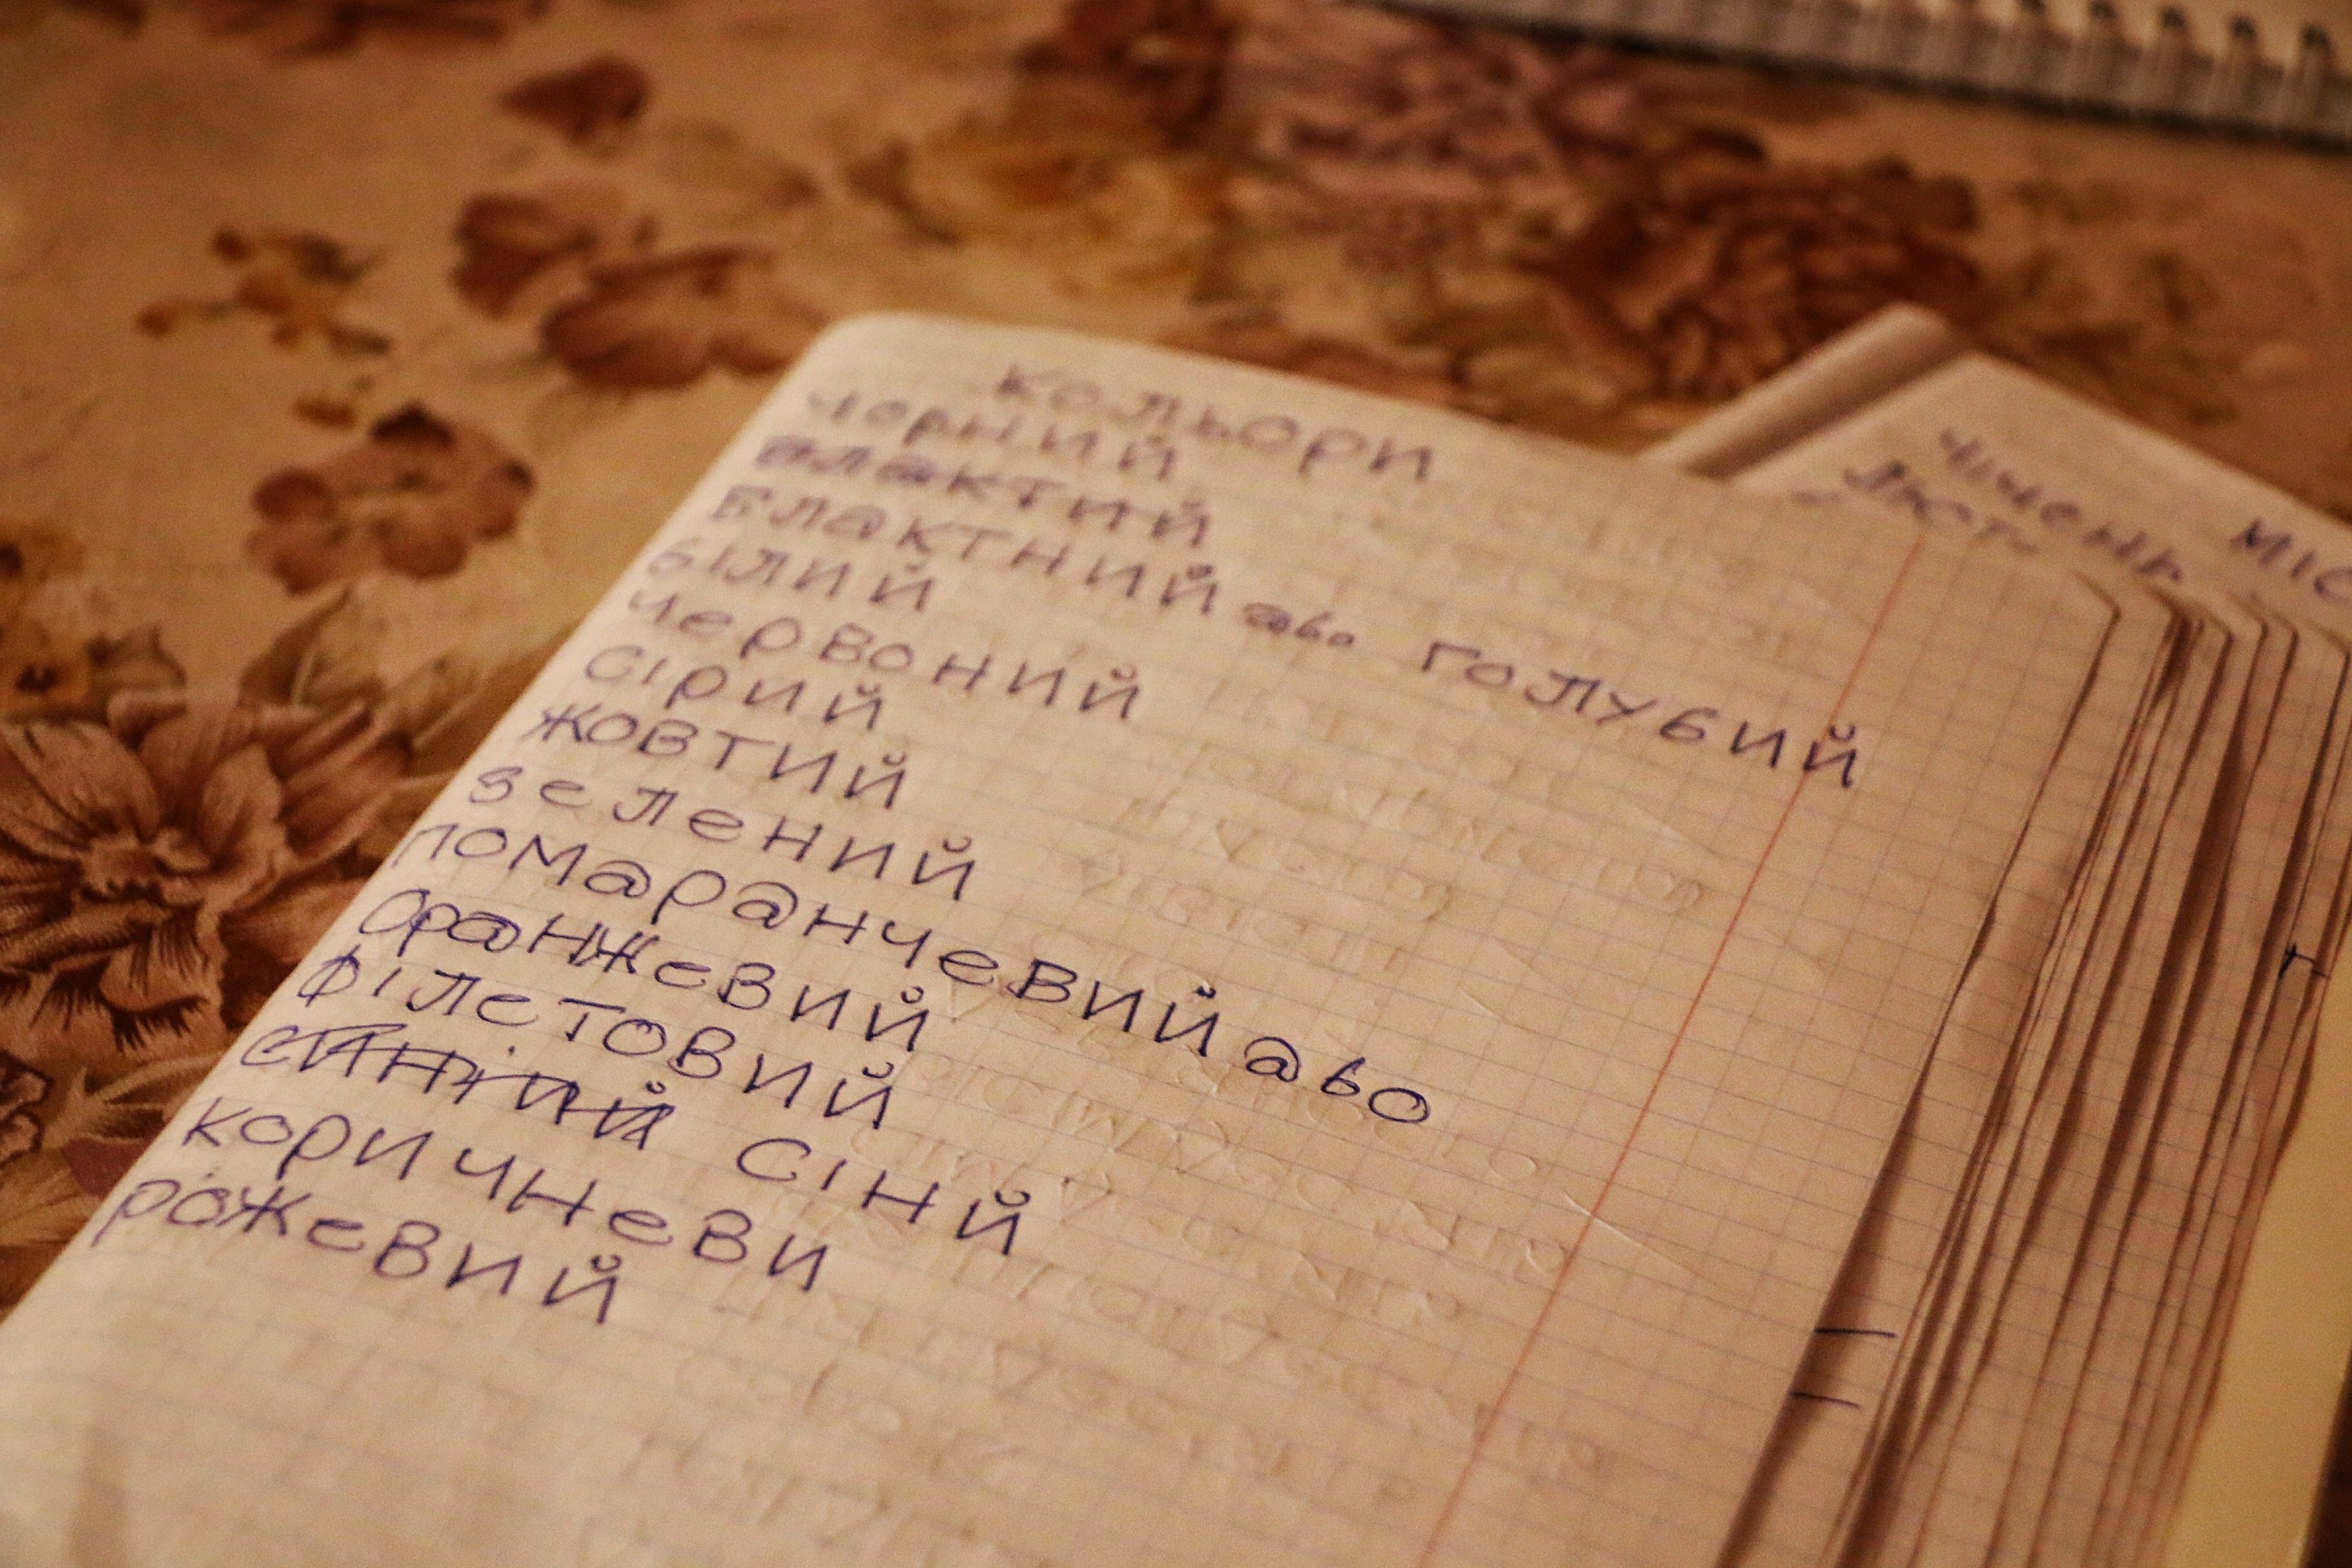 кольори
чорний
блактий
блактний або голубий
білий
червоний
сірий
жовтий
зелений
помаранчевий або
оранжевий
філетовий
синіий сіній
коричневи
рожевий
Чічень
Лют
МІС